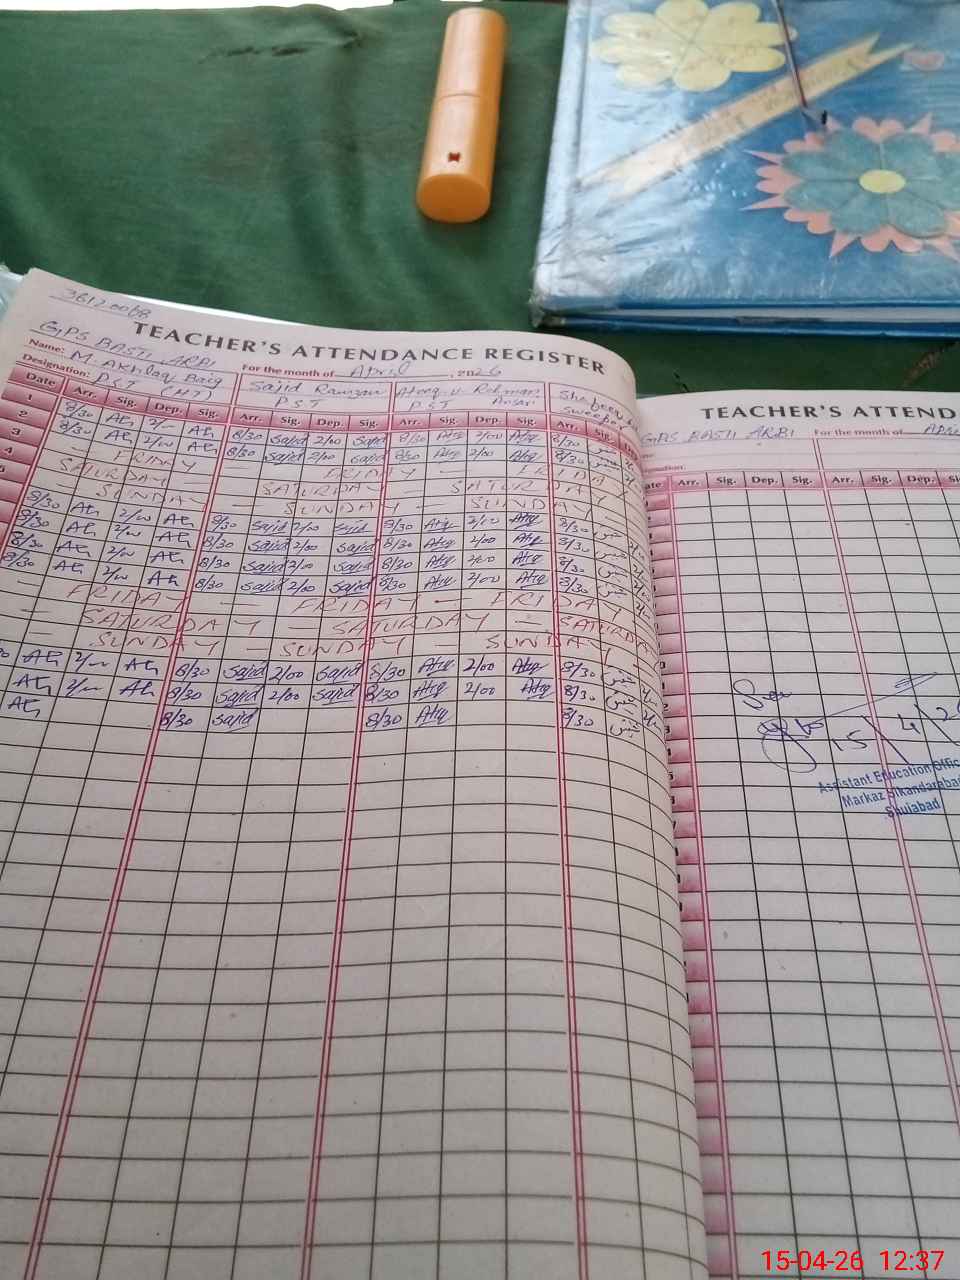 36120068
TEACHER'S ATTENDANCE REGISTER
GPS BASTI ARBI
Name: M. Akhlaq Baig For the month of April, 2026
Designation: PST (HT) Sajid Ramzan PST Ateeq ur Rehman Ansari PST Sweeper
Date Arr. Sig. Dep. Sig. Arr. Sig. Dep. Sig. Arr. Sig. Dep. Sig. Arr. Sig.
1 8/30 Ah 2/00 Ah 8/30 Sajid 2/00 Sajid 8/30 Atq 2/00 Atq 8/30
2 8/30 Ah 2/00 Ah 8/30 Sajid 2/00 Sajid 8/30 Atq 2/00 Atq 8/30
3 — FRIDAY — FRIDAY — FRIDAY
4 SATURDAY — SATURDAY — SATURDAY
— SUNDAY — SUNDAY — SUNDAY —
8/30 Ah 2/00 Ah 8/30 Sajid 2/00 Sajid 8/30 Atq 2/00 Atq 8/30
8/30 Ah 2/00 Ah 8/30 Sajid 2/00 Sajid 8/30 Atq 2/00 Atq 8/30
8/30 Ah 2/00 Ah 8/30 Sajid 2/00 Sajid 8/30 Atq 2/00 Atq 8/30
8/30 Ah 2/00 Ah 8/30 Sajid 2/00 Sajid 8/30 Atq 2/00 Atq 8/30
— FRIDAY — FRIDAY — FRIDAY
— SATURDAY — SATURDAY — SATURDAY
— SUNDAY — SUNDAY — SUNDAY
Ah 2/00 Ah 8/30 Sajid 2/00 Sajid 8/30 Atq 2/00 Atq 8/30
Ah 2/00 Ah 8/30 Sajid 2/00 Sajid 8/30 Atq 2/00 Atq 8/30
Ah 8/30 Sajid 8/30 Atq 8/30
TEACHER'S ATTEND
GPS BASTI ARBI For the month of
Arr. Sig. Dep. Sig. Arr. Sig. Dep.
15/4/2
Assistant Education Offic
Markaz Sikandarabad
Shujabad
15-04-26 12:37